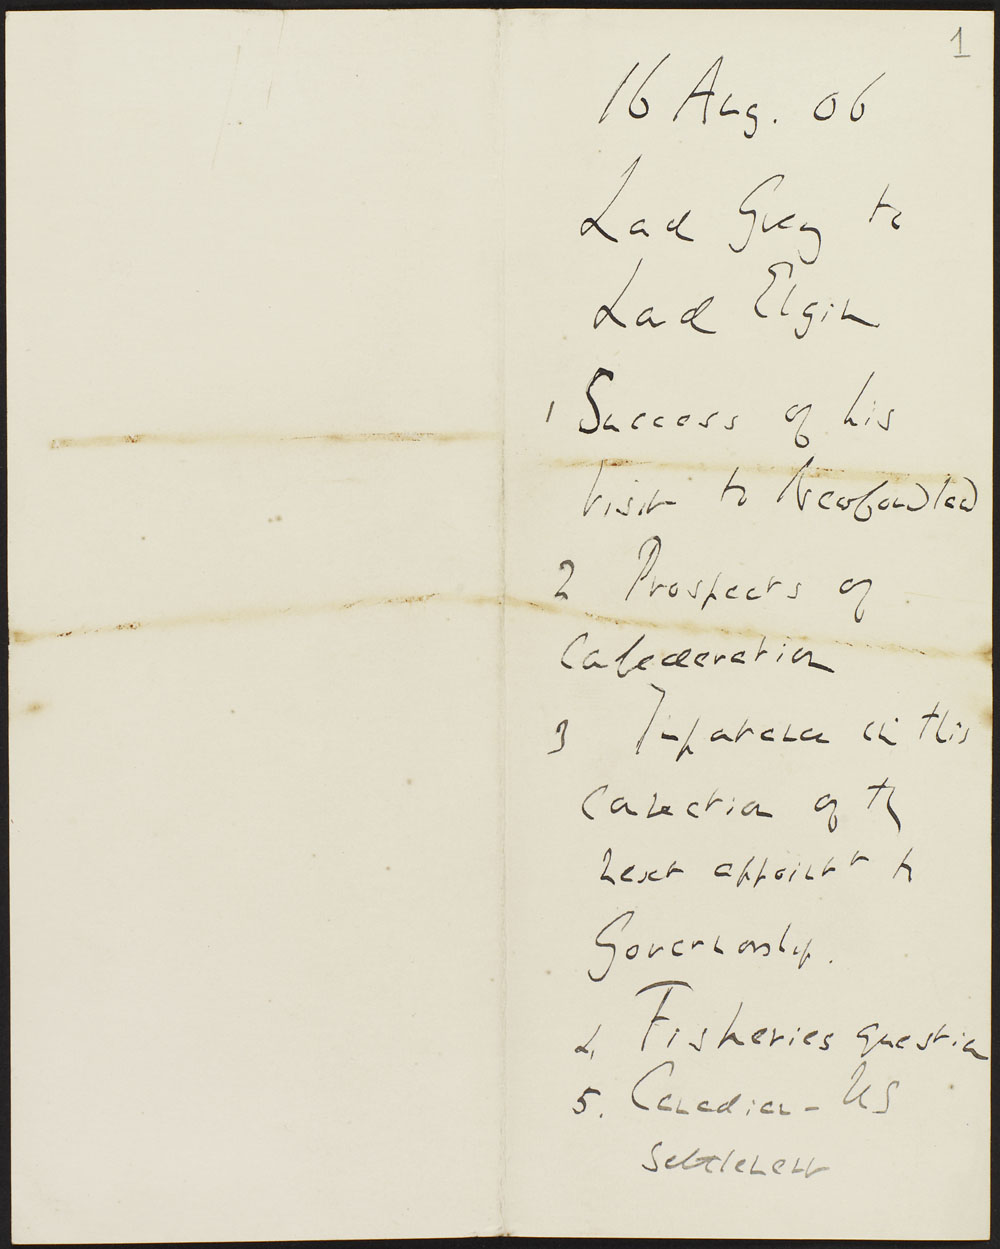 1
16 Aug. 06
Lord Grey to
Lord Elgin
1 Success of his
visit to Newfoundland
2 Prospects of
Confederation
3 Importance in this
connection of the
next appointt to
Governorship.
4. Fisheries question
5. Canadian - US
Settlement